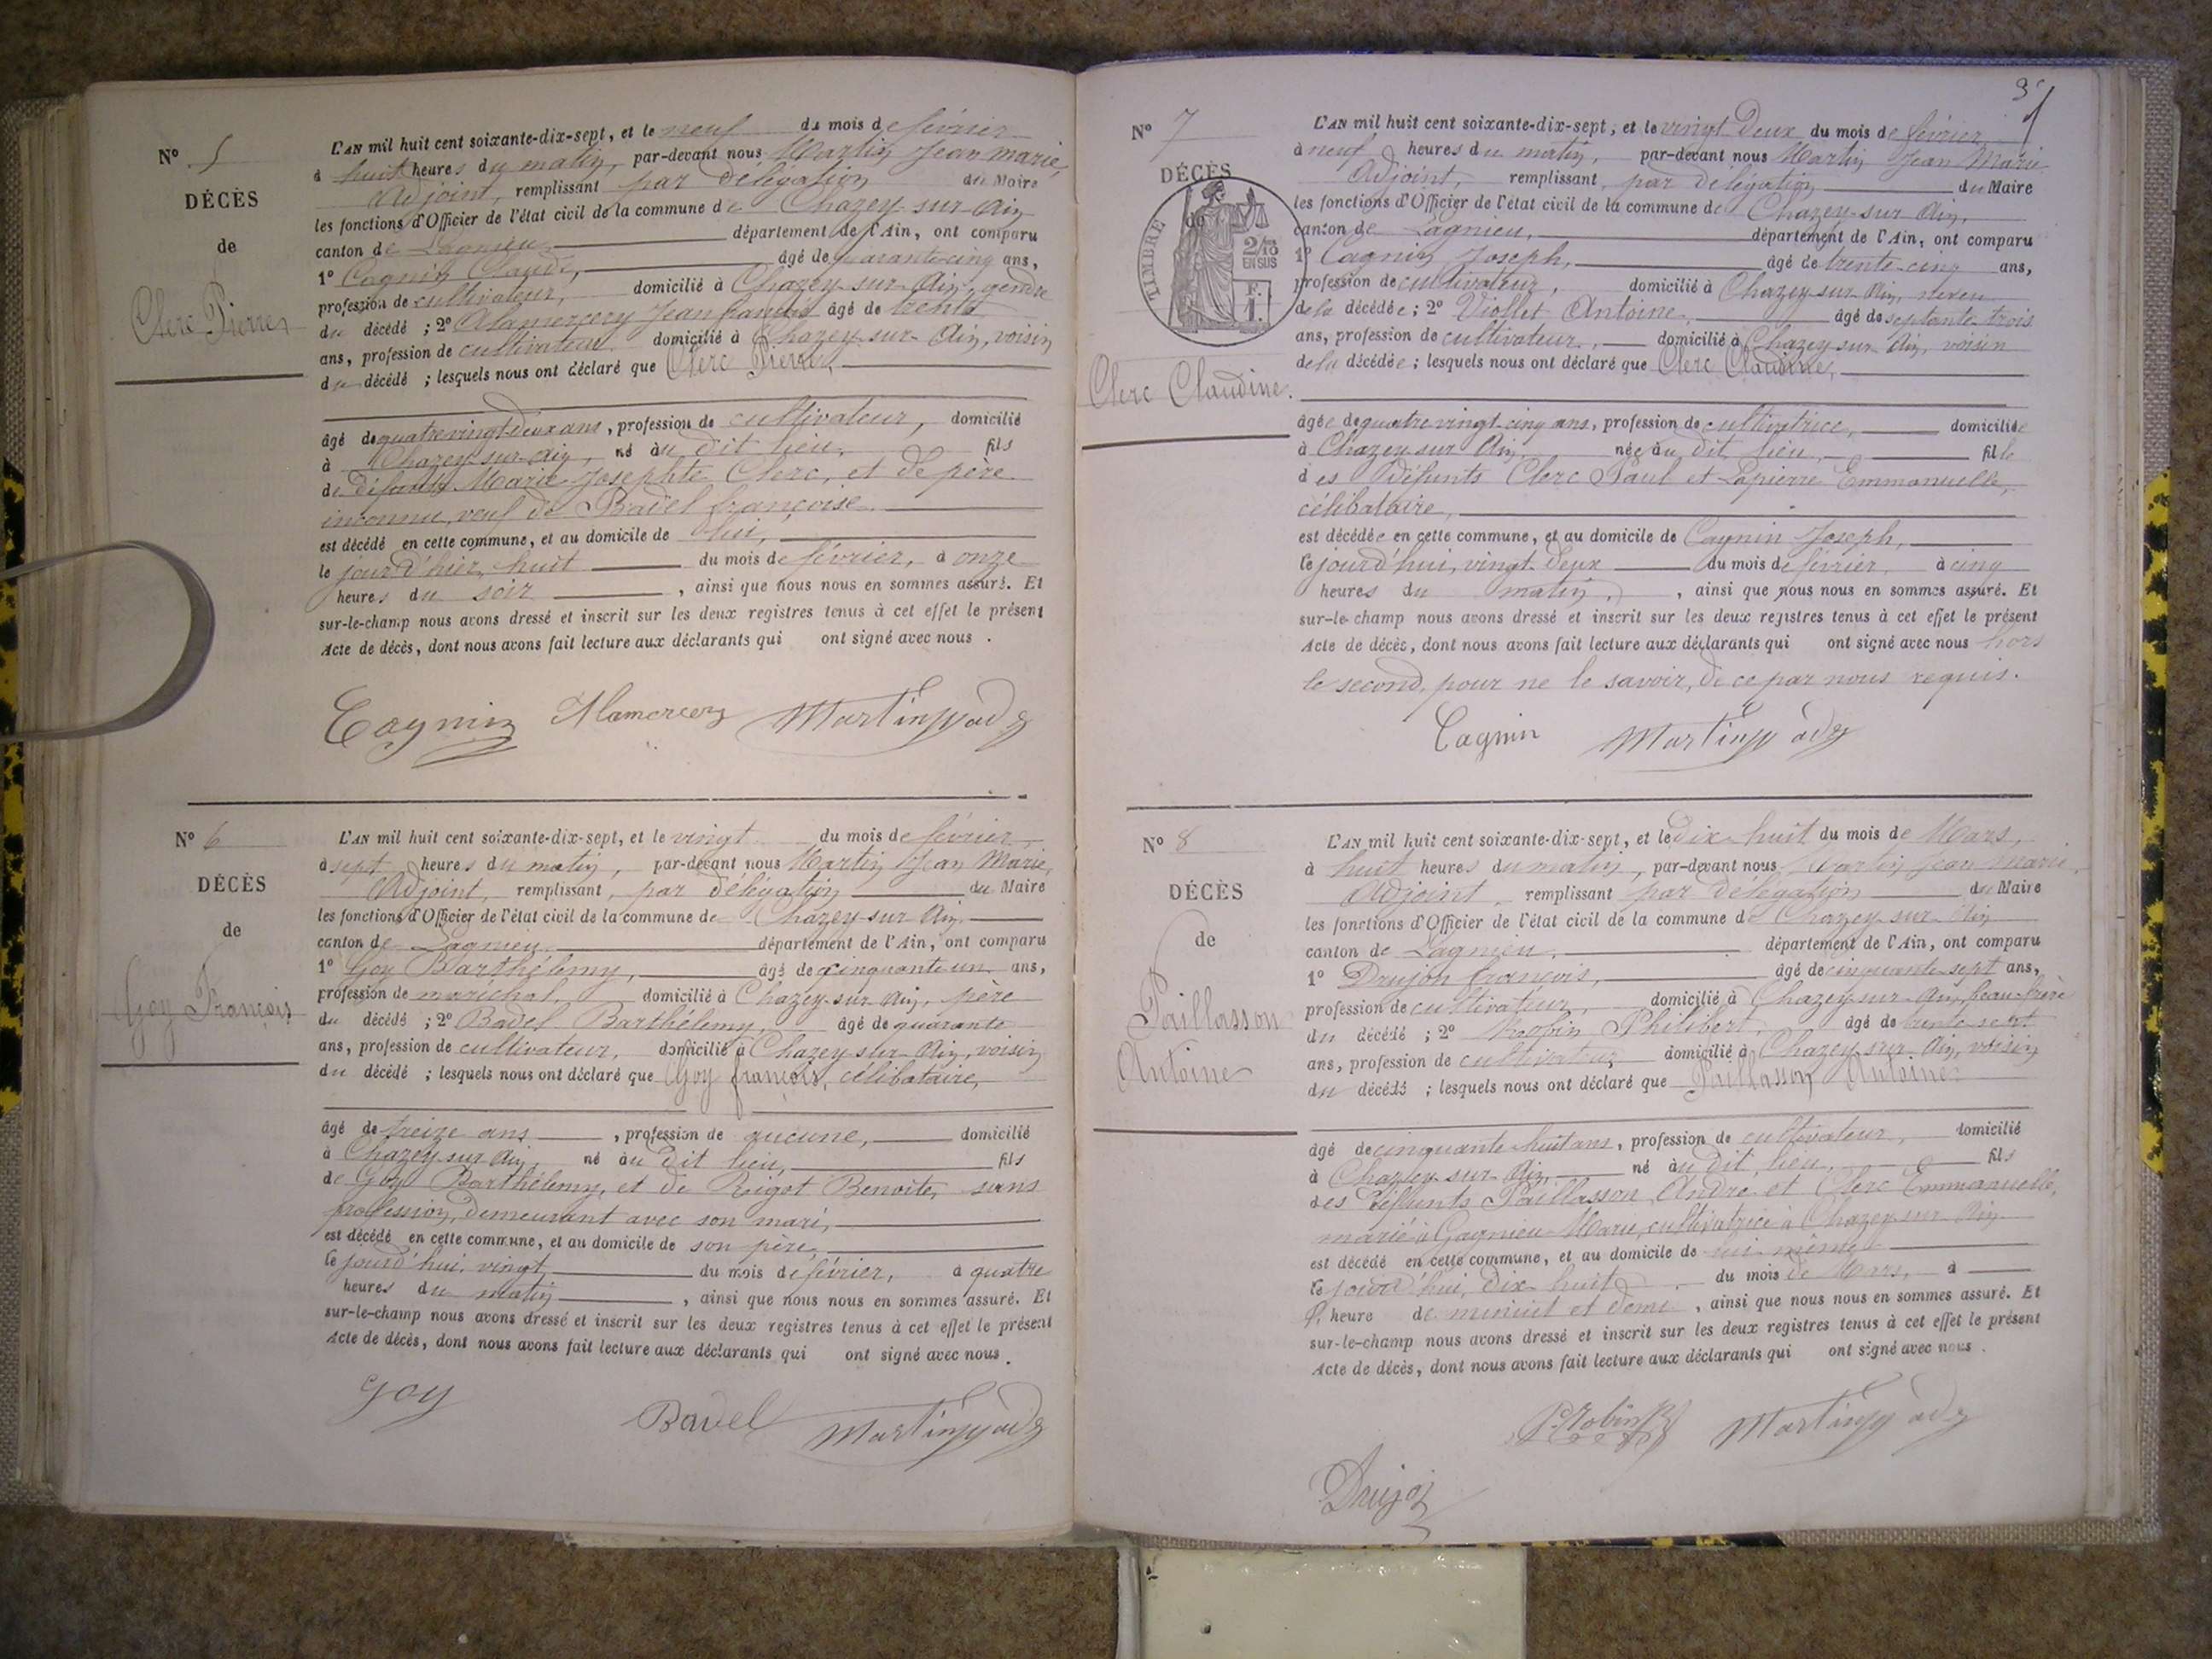 Nº 5
DÉCÈS
de
Clerc Pierre
L'AN mil huit cent soixante-dix-sept, et le neuf du mois de février
à huit heures du matin, par-devant nous Martin Jean Marie,
Adjoint, remplissant par délégation du Maire
les fonctions d'Officier de l'état civil de la commune de Chazey-sur-Ain
canton de Lagnieu département de l'Ain, ont comparu
1º Cagnin Claude, âgé de quarante-cinq ans,
profession de cultivateur, domicilié à Chazey-sur-Ain, gendre
du décédé ; 2º Alamercery Jean françois âgé de trente
ans, profession de cultivateur domicilié à Chazey-sur-Ain, voisin
du décédé ; lesquels nous ont déclaré que Clerc Pierre,
âgé de quatre vingt deux ans, profession de cultivateur, domicilié
à Chazey-sur-Ain, né au dit lieu, fils
de défunte Marie Josephte Clerc, et de père
inconnu, veuf de Badel françoise
est décédé en cette commune, et au domicile de lui,
le jour d'hier, huit du mois de février, à onze
heures du soir, ainsi que nous nous en sommes assuré. Et
sur-le-champ nous avons dressé et inscrit sur les deux registres tenus à cet effet le présent
Acte de décès, dont nous avons fait lecture aux déclarants qui ont signé avec nous.
Cagnin Alamercery Martin adj
Nº 6
DÉCÈS
de
Goy François
L'AN mil huit cent soixante-dix-sept, et le vingt du mois de février
à sept heures du matin, par-devant nous Martin Jean Marie,
Adjoint, remplissant par délégation du Maire
les fonctions d'Officier de l'état civil de la commune de Chazey-sur-Ain
canton de Lagnieu département de l'Ain, ont comparu
1º Goy Barthélemy, âgé de cinquante un ans,
profession de maréchal, domicilié à Chazey-sur-Ain, père
du décédé ; 2º Badel Barthélemy, âgé de quarante
ans, profession de cultivateur, domicilié à Chazey-sur-Ain, voisin
du décédé ; lesquels nous ont déclaré que Goy françois, célibataire,
âgé de treize ans, profession de aucune, domicilié
à Chazey sur Ain né au dit lieu, fils
de Goy Barthélemy, et de Rigot Benoîte, sans
profession, demeurant avec son mari,
est décédé en cette commune, et au domicile de son père,
le jourd'hui, vingt du mois de février, à quatre
heures du matin, ainsi que nous nous en sommes assuré. Et
sur-le-champ nous avons dressé et inscrit sur les deux registres tenus à cet effet le présent
Acte de décès, dont nous avons fait lecture aux déclarants qui ont signé avec nous.
Goy Badel Martin adj
Nº 7
DÉCÈS
de
TIMBRE
2/10
EN SUS
F.
1.
Clerc Claudine.
L'AN mil huit cent soixante-dix-sept, et le vingt deux du mois de février
à neuf heures du matin, par-devant nous Martin Jean Marie
Adjoint, remplissant par délégation du Maire
les fonctions d'Officier de l'état civil de la commune de Chazey-sur Ain,
canton de Lagnieu, département de l'Ain, ont comparu
1º Cagnin Joseph, âgé de trente-cinq ans,
profession de cultivateur, domicilié à Chazey-sur-Ain, neveu
de la décédée ; 2º Viollet Antoine, âgé de septante trois
ans, profession de cultivateur, domicilié à Chazey-sur Ain, voisin
de la décédée ; lesquels nous ont déclaré que Clerc Claudine,
âgée de quatre vingt cinq ans, profession de cultivatrice, domiciliée
à Chazey sur Ain, née au dit lieu, fille
des défunts Clerc Paul et Lapierre Emmanuelle,
célibataire,
est décédée en cette commune, et au domicile de Cagnin Joseph,
le jourd'hui, vingt deux du mois de février, à cinq
heures du matin, ainsi que nous nous en sommes assuré. Et
sur-le-champ nous avons dressé et inscrit sur les deux registres tenus à cet effet le présent
Acte de décès, dont nous avons fait lecture aux déclarants qui ont signé avec nous hors
le second, pour ne le savoir, de ce par nous requis.
Cagnin Martin adj
Nº 8
DÉCÈS
de
Paillasson
Antoine
L'AN mil huit cent soixante-dix-sept, et le dix-huit du mois de Mars,
à huit heures du matin, par-devant nous Martin Jean Marie,
Adjoint, remplissant par délégation du Maire
les fonctions d'Officier de l'état civil de la commune de Chazey-sur-Ain
canton de Lagnieu, département de l'Ain, ont comparu
1º Drujon françois, âgé de cinquante sept ans,
profession de cultivateur, domicilié à Chazey-sur-Ain, beau-frère
du décédé ; 2º Robin Philibert, âgé de trente-sept
ans, profession de cultivateur domicilié à Chazey-sur Ain, voisin
du décédé ; lesquels nous ont déclaré que Paillasson Antoine
âgé de cinquante huit ans, profession de cultivateur, domicilié
à Chazey-sur-Ain, né au dit lieu, fils
des défunts Paillasson André et Clerc Emmanuelle,
marié à Gagnieu Marie, cultivatrice à Chazey-sur-Ain
est décédé en cette commune, et au domicile de lui même
le jourd'hui, dix-huit du mois de Mars, à
heure de minuit et demi, ainsi que nous nous en sommes assuré. Et
sur-le-champ nous avons dressé et inscrit sur les deux registres tenus à cet effet le présent
Acte de décès, dont nous avons fait lecture aux déclarants qui ont signé avec nous.
P. Robin Martin adj
Drujon